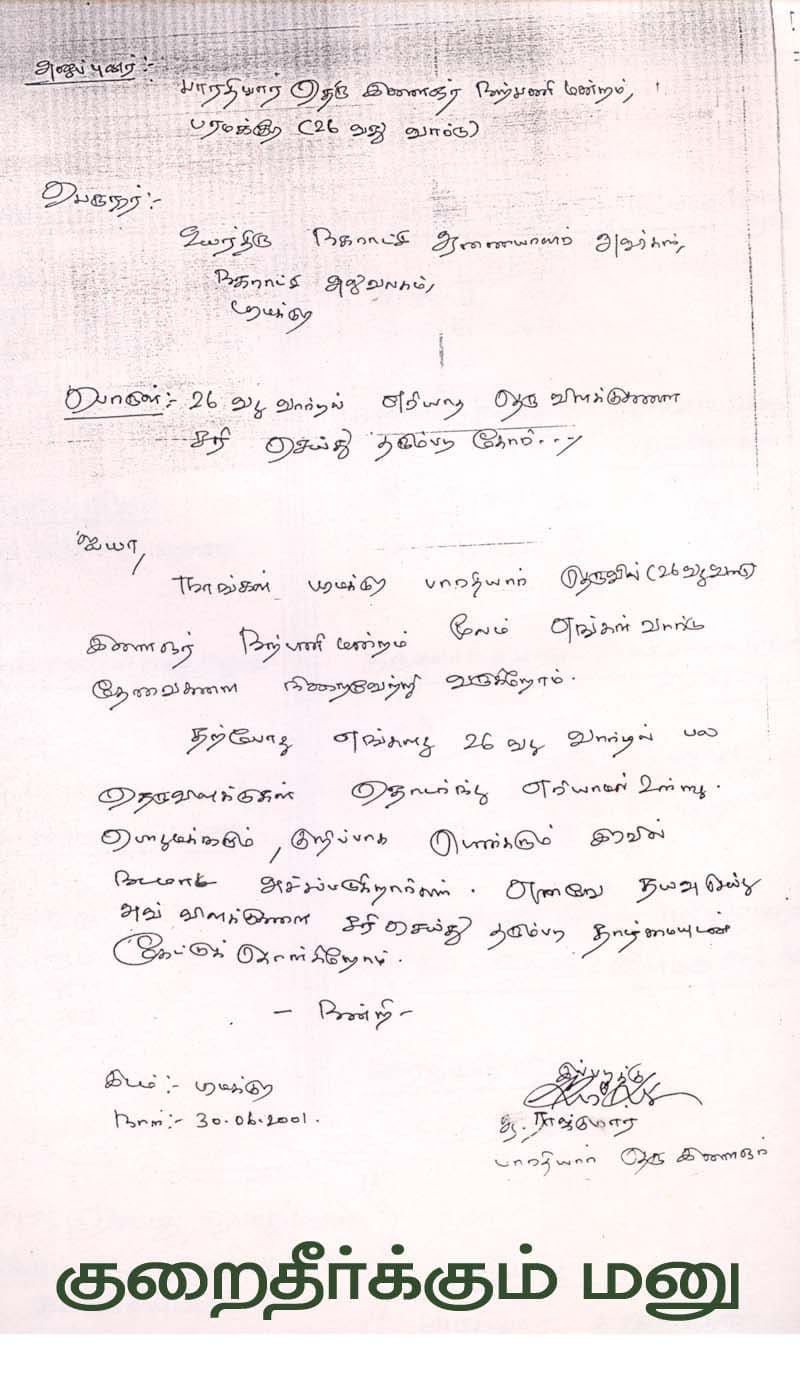 அனுப்புனர் :-
பாரதியார் தெரு இளைஞர் நற்பணி மன்றம்,
பரமக்குடி (26 வது வார்டு)
பெருநர் :-
உயர்திரு நகராட்சி ஆணையாளர் அவர்கள்,
நகராட்சி அலுவலகம்,
பரமக்குடி
பொருள் :- 26 வது வார்டில் எரியாத தெரு விளக்குகளை
சரி செய்து தரும்படி கோரி....
ஐயா,
நாங்கள் பரமக்குடி பாரதியார் தெருவில் (26 வது வார்டு
இளைஞர் நற்பணி மன்றம் மூலம் எங்கள் வார்டு
தேவைகளை நிறைவேற்றி வருகிறோம்.
தற்போது எங்களது 26 வது வார்டில் பல
தெருவிளக்குகள் தொடர்ந்து எரியாமல் உள்ளது.
பொதுமக்களும், குறிப்பாக பெண்களும் இரவில்
நடமாட அச்சப்படுகிறார்கள். எனவே தயவு செய்து
அவ் விளக்குகளை சரி செய்து தரும்படி தாழ்மையுடன்
கேட்டுக் கொள்கிறோம்.
- நன்றி -
இடம் :- பரமக்குடி
நாள் :- 30.06.2001.
இப்படிக்கு
பாரதியார் தெரு இளைஞர்
குறைதீர்க்கும் மனு